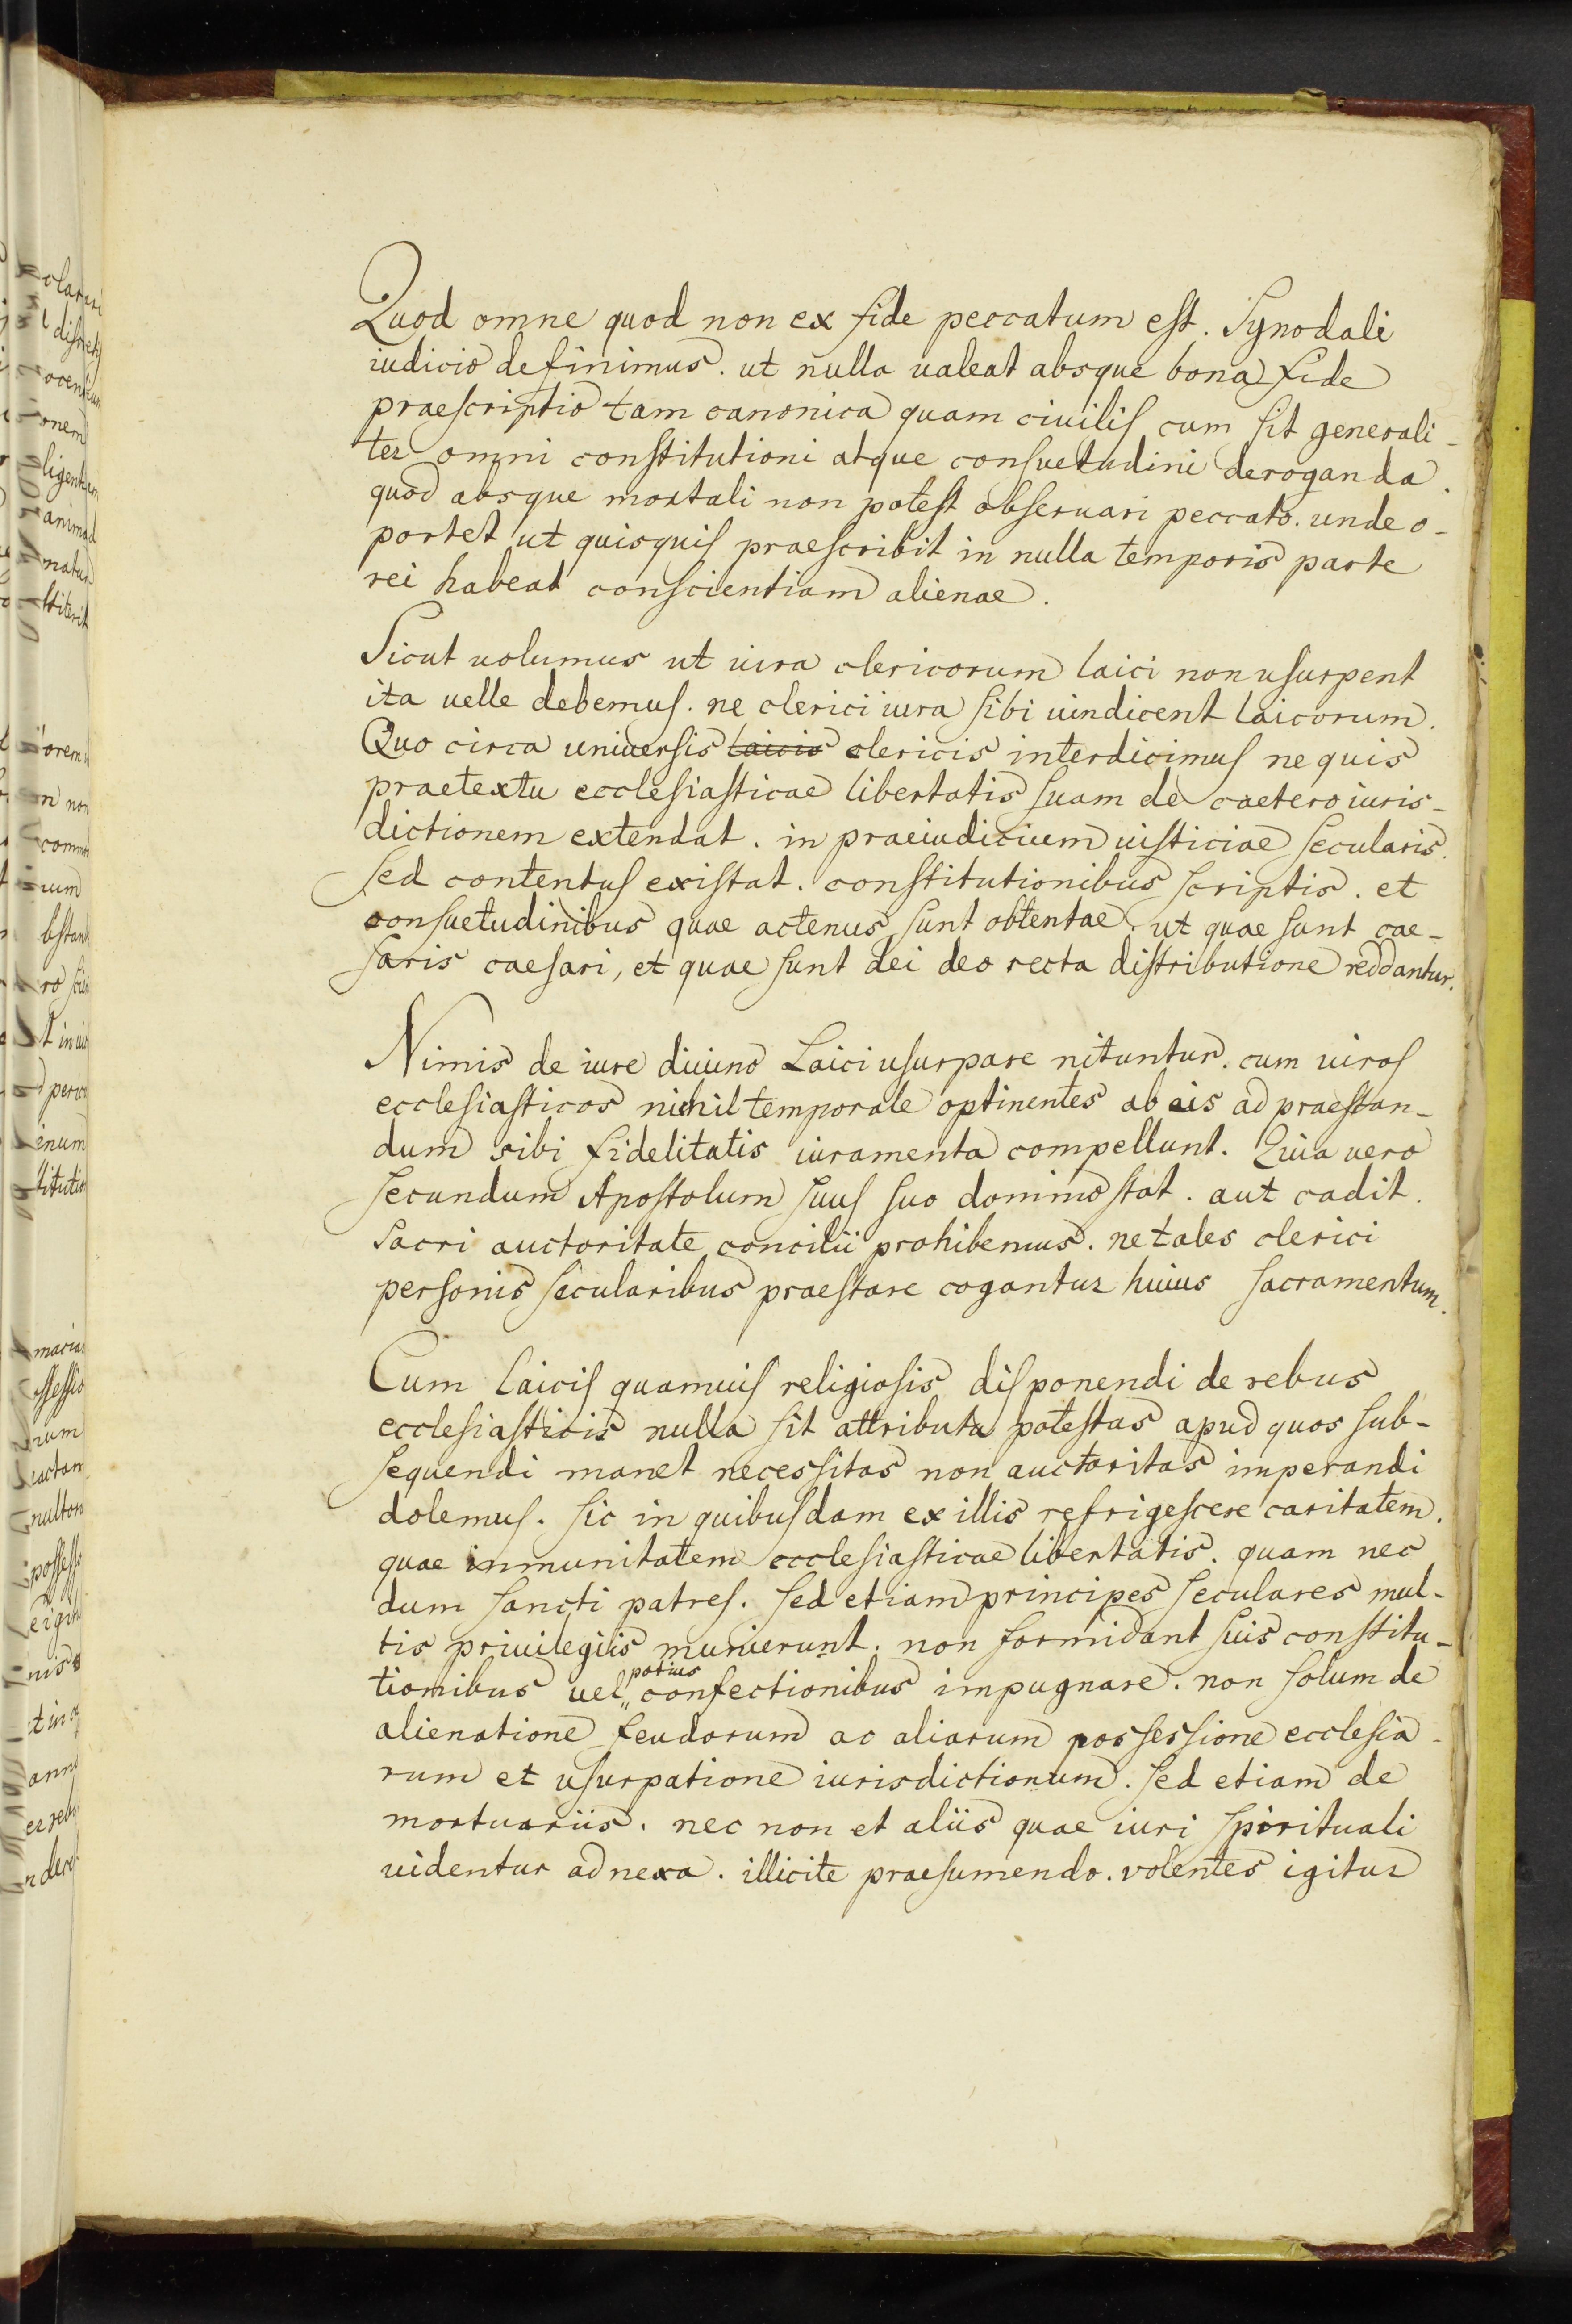 Quod omne quod non ex fide peccatum est. Synodali
iudicio definimus. ut nulla ualeat absque bona fide
praescriptio tam canonica quam ciuilis cum sit generali-
ter omni constitutioni atque consuetudini deroganda.
quod absque mortali non potest obseruari peccato. unde o-
portet ut quisquis praescribit in nulla temporis parte
rei habeat conscientiam alienae.
Sicut uolumus ut iura clericorum laici non usurpent
ita uelle debemus. ne clerici iura sibi uindicent laicorum.
Quo circa universis laicis clericis interdicimus ne quis
praetextu ecclesiasticae libertatis suam de caetero iuris-
dictionem extendat. in praeiudicium iusticiae secularis.
sed contentus existat. constitutionibus scriptis. et
consuetudinibus quae actenus sunt obtentae. ut quae sunt cae-
saris caesari, et quae sunt dei deo recta distributione reddantur.
Nimis de iure diuino Laici usurpare nituntur. cum uiros
ecclesiasticos nichil temporale optinentes ab eis ad praestan-
dum sibi fidelitatis iuramenta compellunt. Quia uero
secundum Apostolum suus suo domino stat. aut cadit.
Sacri auctoritate concilii prohibemus. ne tales clerici
personis secularibus praestare cogantur huius sacramentum.
Cum laicis quamuis religiosis disponendi de rebus
ecclesiasticis nulla sit attributa potestas apud quos sub-
sequendi manet necessitas non auctoritas imperandi
dolemus. sic in quibusdam ex illis refrigescere caritatem.
quae inmunitatem ecclesiasticae libertatis. quam nec
dum sancti patres. sed etiam principes seculares mul-
tis priuilegiis munierunt. non formidant suis constitu-
tionibus uel potius confectionibus impugnare. non solum de
alienatione feudorum ac aliarum possessione ecclesia-
rum et usurpatione iurisdictionum. sed etiam de
mortuariis. nec non et aliis quae iuri spirituali
uidentur adnexa. illicite praesumendo. volentes igitur